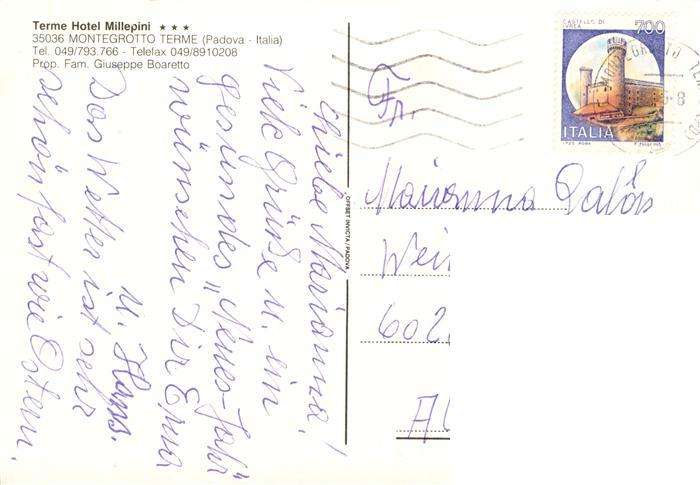 Terme Hotel Millepini ★ ★ ★
35036 MONTEGROTTO TERME (Padova - Italia)
Tel. 049/793.766 - Telefax 049/8910208
Prop. Fam. Giuseppe Boaretto
Liebe Marianna!
Viele Grüße u. ein
gesundes „Neues-Jahr
wünschen Dir Erna
u. Hans.
Das Wetter ist sehr
schön fast wie Ostern.
OFFSET INVICTA/PADOVA
CASTELLO DI
IVREA
700
ITALIA
Fr.
Marianna
602